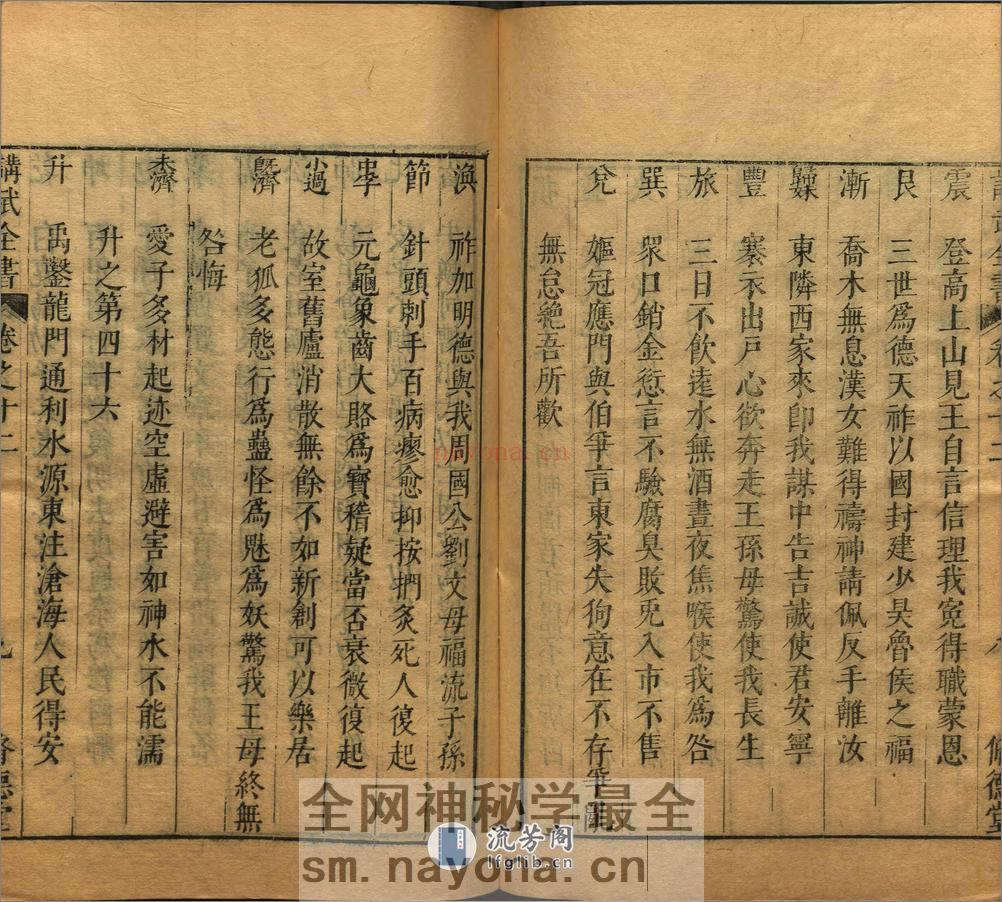 震　登高上山見王自言信理我寃得職蒙恩
艮　三世爲德天祚以國封建少昊魯侯之福
漸　喬木無息漢女難得禱神請佩反手離汝
歸妹　東隣西家來即我謀中告吉誠使君安寧
豐　褰衣出戶心欲奔走王孫母驚使我長生
旅　三日不飲遠水無酒晝夜焦喉使我爲咎
巽　衆口銷金愆言不驗腐臭敗兎入市不售
兌　嫗冠應門與伯爭言東家失狗意在不存爭亂
無怠絶吾所歡
渙　祚加明德與我周國公劉文母福流子孫
節　針頭刺手百病瘳愈抑按捫灸死人復起
中孚　元龜象齒大賂爲寶稽疑當否衰微復起
小過　故室舊廬消散無餘不如新創可以樂居
旣濟　老狐多態行爲蠱怪爲魅爲妖驚我王母終無
咎悔
未濟　愛子多材起迹空虛避害如神水不能濡
升之第四十六
升　禹鑿龍門通利水源東注滄海人民得安
講武全書 卷之十二 九
全网神秘学最全
流芳阁
lfglib.cn
sm.nayona.cn
nayona.cn